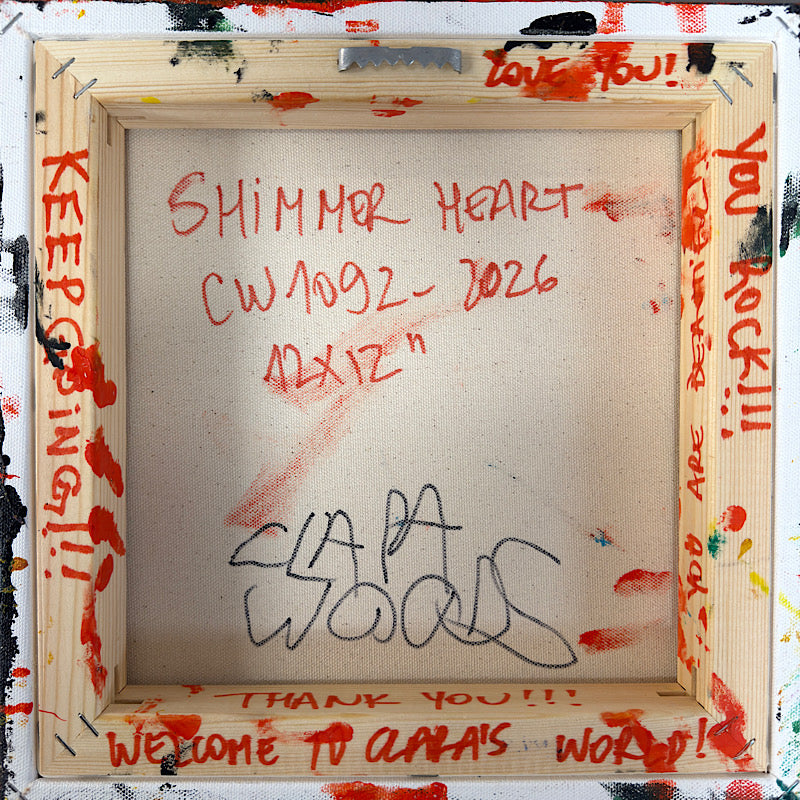 LOVE YOU!
YOU ROCK!!!
YOU ARE BEAUTIFUL
KEEP GOING!!!
SHiMMER HEART
CW1092- 2026
12X12"
CLARA
WOODS
THANK YOU!!!
WELCOME TO CLARA'S WORLD!